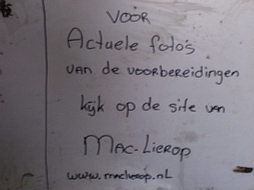 VOOR
Actuele foto's
van de voorbereidingen
kijk op de site van
MAC-LIEROP
www.maclierop.nl